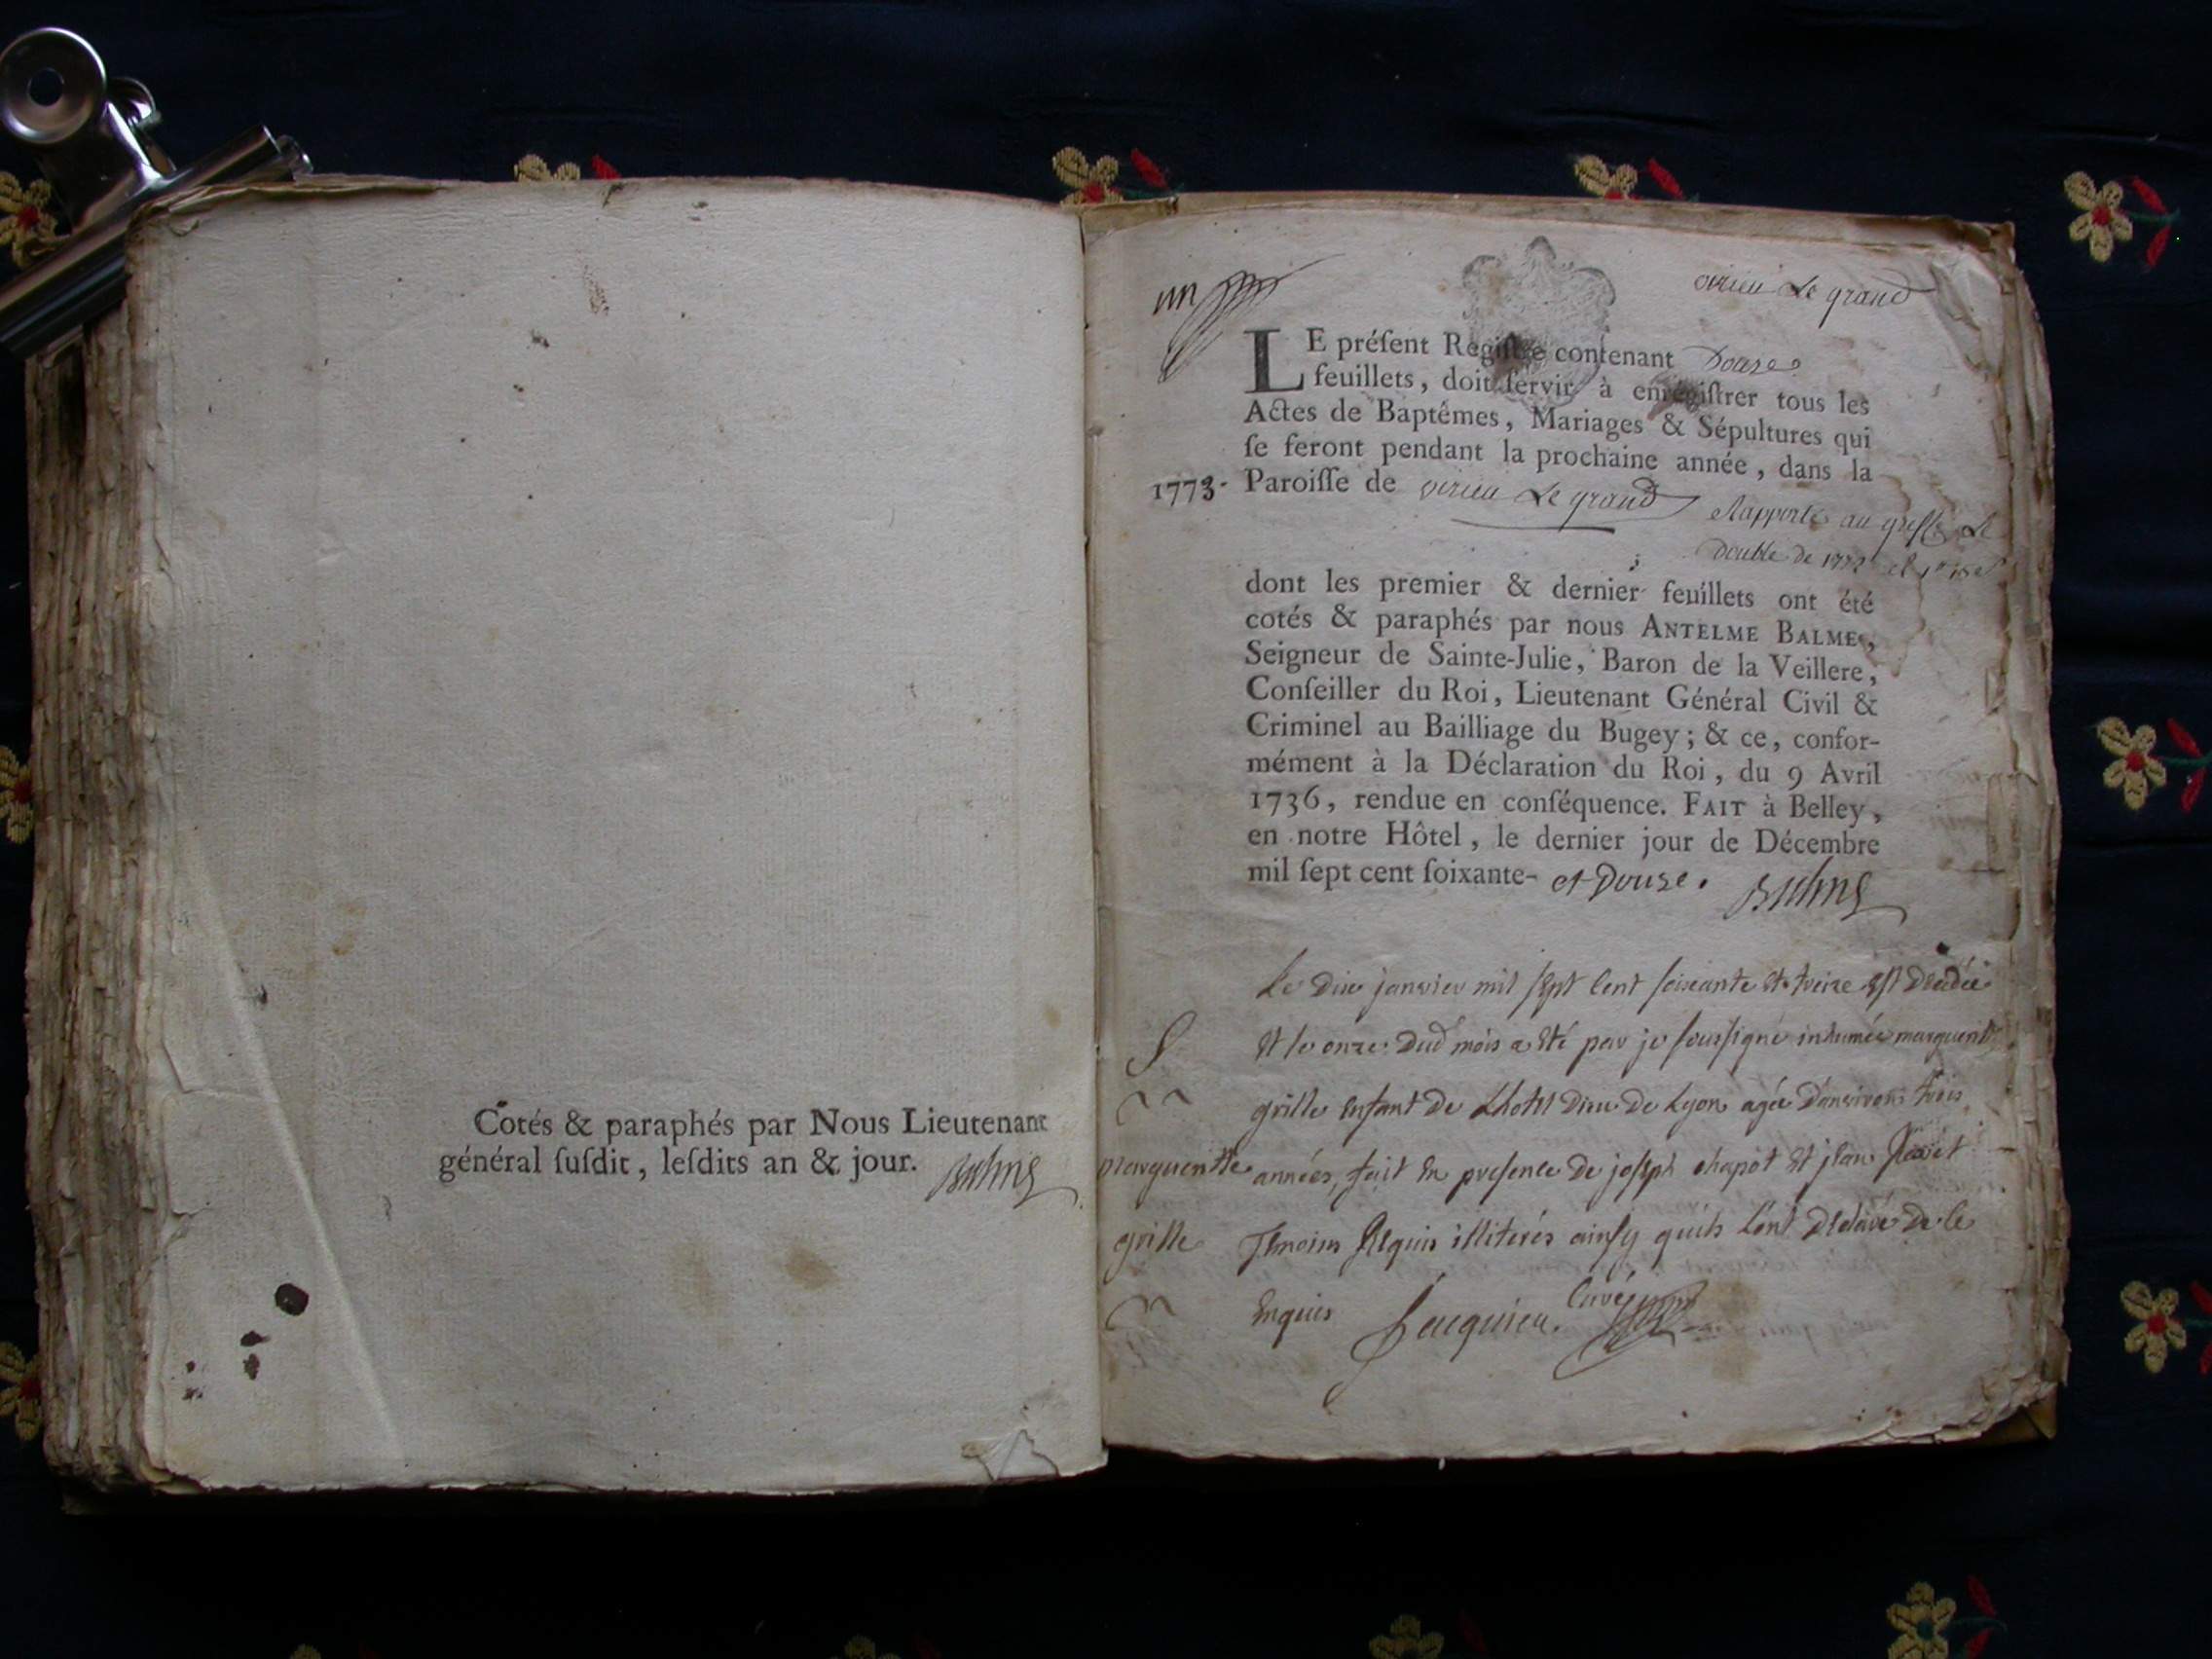 Cotés & paraphés par Nous Lieutenant
général ſuſdit, leſdits an & jour. Balme
un
virieu Le grand
LE préſent Regiſtre contenant Douze
feuillets, doit ſervir à enregiſtrer tous les
Actes de Baptêmes, Mariages & Sépultures qui
ſe feront pendant la prochaine année, dans la
1773. Paroiſſe de virieu Le grand
Rapporté au greffe Le
double de 1772
dont les premier & dernier feuillets ont été
cotés & paraphés par nous ANTELME BALME,
Seigneur de Sainte-Julie, Baron de la Veillere,
Conſeiller du Roi, Lieutenant Général Civil &
Criminel au Bailliage du Bugey; & ce, confor-
mément à la Déclaration du Roi, du 9 Avril
1736, rendue en conſéquence. FAIT à Belley,
en notre Hôtel, le dernier jour de Décembre
mil ſept cent ſoixante- et Douze. Balme
Le dix janvier mil sept cent soixante et treize est décédée
S
et le onze dud mois a eté par je soussigné inhumée margueritte
grille enfant de Lhotel dieu de Lyon agée d'environ trois
margueritte
années, fait en presence de joseph chapot et jean
grille
temoins requis illiterés ainsy quils l'ont déclaré de ce
enquis Jacquieu. Curé